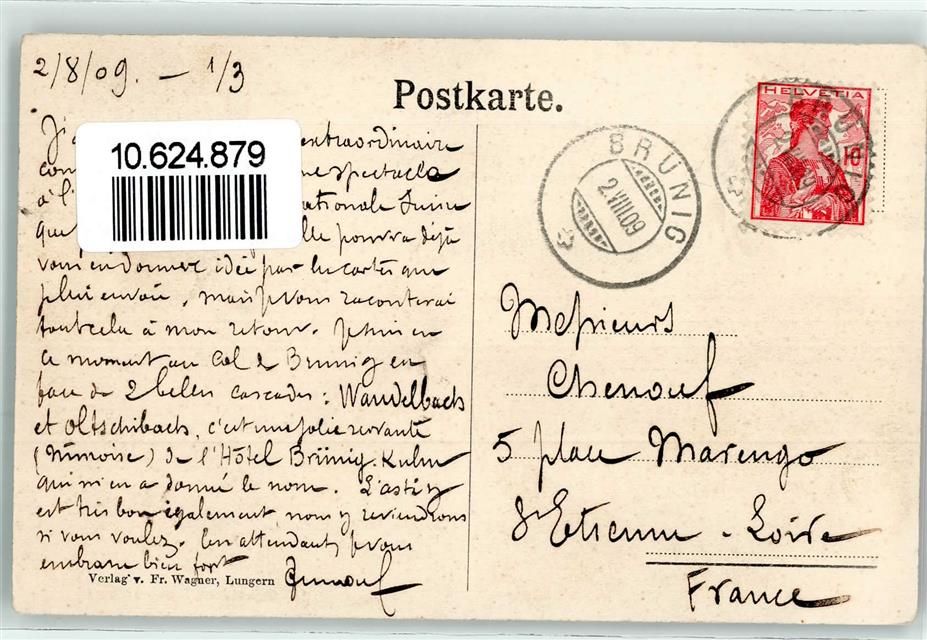 2/8/09. — 1/3
Postkarte.
J'a extraordinaire
10.624.879
con spectacle
à l' nationale Suisse
que elle pourra déjà
vous en donner idée par les cartes que
plui envoie, mais je vous raconterai
tout cela à mon retour. Je suis en
ce moment au Col de Brunig en
face de 2 belles cascades : Wandelbach
et Oltschibach, c'est une jolie servante
de l'Hôtel Brünig-Kulm
qui m'en a donné le nom. L'asti y
est très bon également, nous y reviendrons
si vous voulez. En attendant, je vous
embrasse bien fort
Verlag v. Fr. Wagner, Lungern
BRÜNIG
2.VIII.09
HELVETIA
10
Messieurs
Chenouf
5 place Marengo
St Etienne - Loire
France